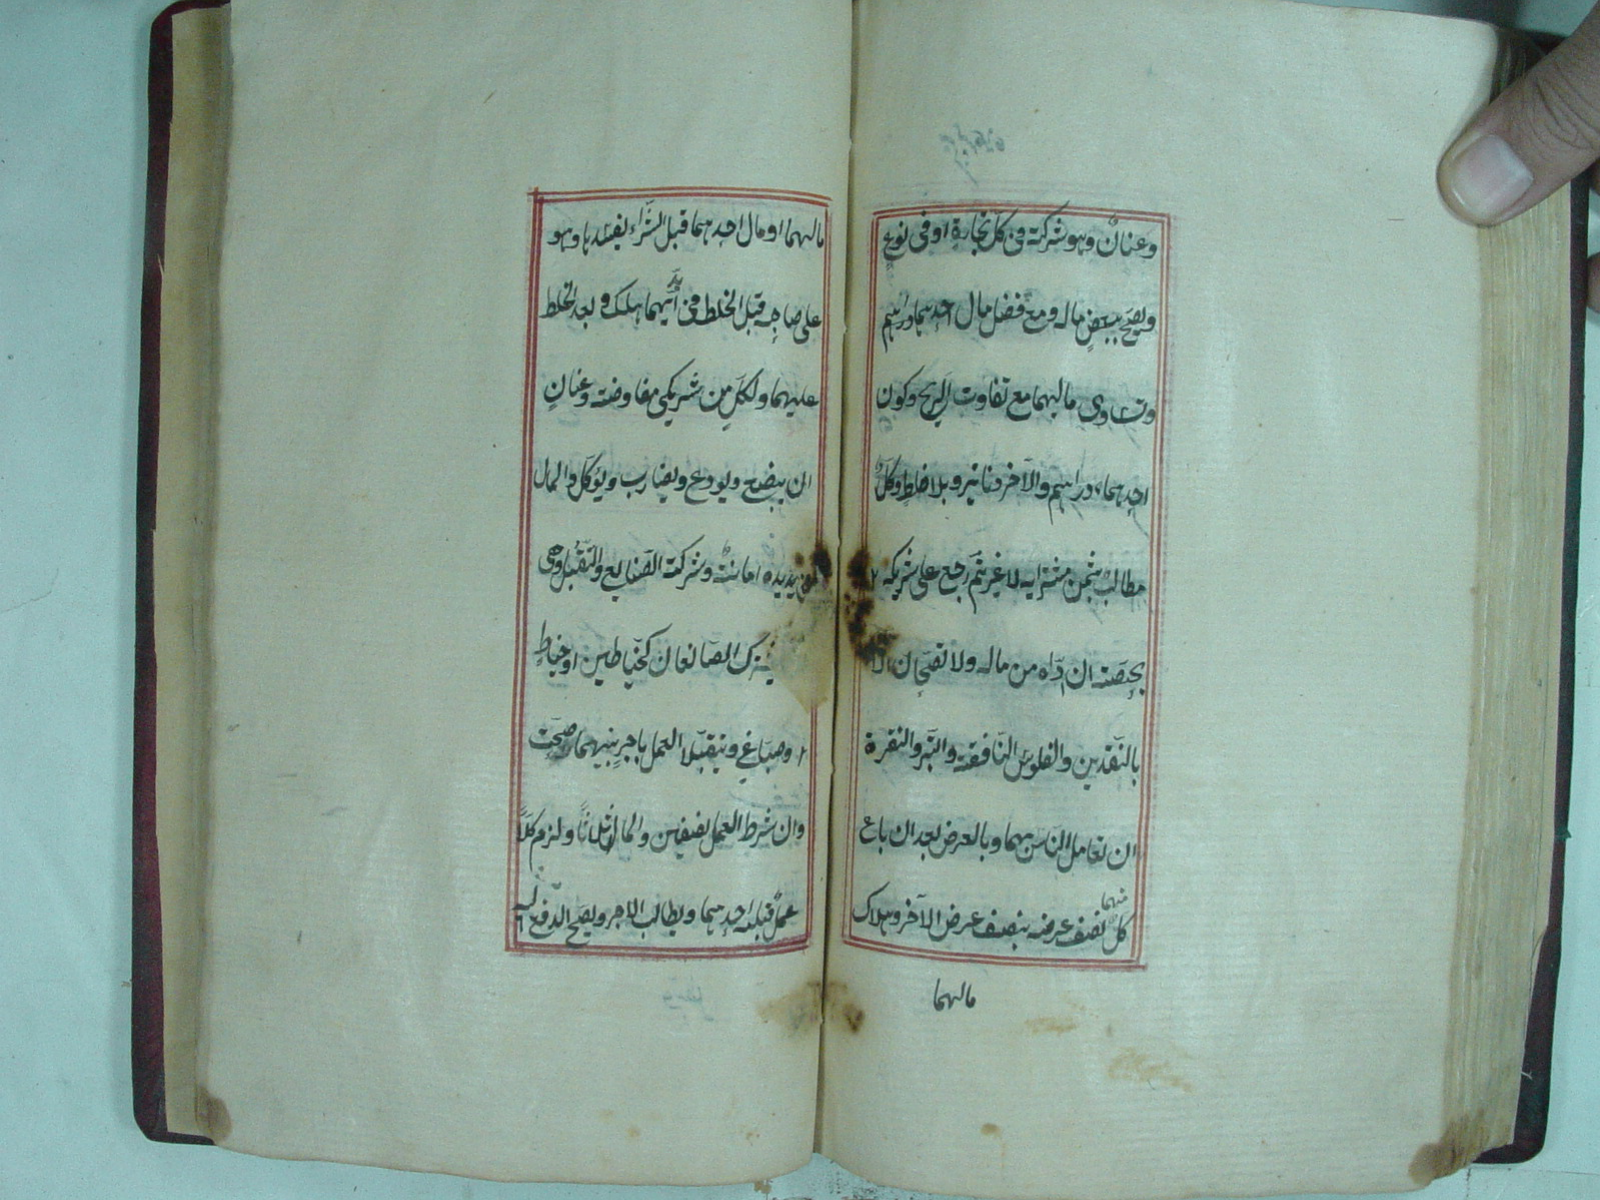 وعنانٌ وهو شركة فى كل تجارة او فى نوع
ويصح ببعض ماله ومع فضل مال احدهما دراهم
وتساوى ماليهما مع تفاوت الربح وكون
احدهما دراهم والآخر دنانير وبلا خلط وكلٌّ
مطالب بثمن مشرايه لا غير ثم رجع على شريكه
بحصته ان ادّاه من ماله ولا تصحّان الّا
بالنّقدين والفلوس النّافقة والتّبر والنقرة
ان تعامل النّاس بهما وبالعرض بعد ان باع
كلّ منهما نصف عرضه بنصف عرض الآخر وهلاك
مالهما
مالهما او مال احدهما قبل الشّراء يفسدها وهو
على صاحبه قبل الخلط فى يد ايّهما هلك وبعد الخلط
عليهما ولكلّ من شريكى مفاوضة وعنان
ان يبضع ويودع ويضارب ويؤكل والمال
فى يده امانة وشركة الصّنايع والتّقبّل وهى
يشترك الصّانعان كخيّاطين او خيّاط
وصبّاغ ويتقبّلا العمل باجر بينهما صحّت
وان شرط العمل نصفين والمال اثلاثًا ولزم كلًّا
عملٌ قبله احدهما ويطالب الاجر ويصحّ الدّفع